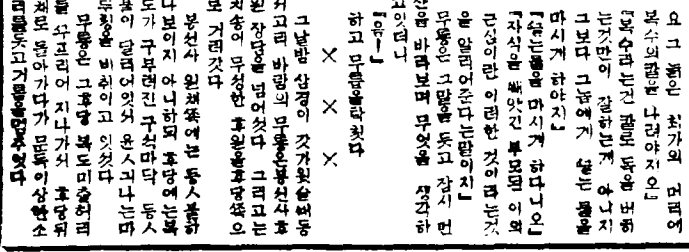 요 그 늙은 최가의 머리에
복수의 칼을 나려야지오』
『복수라는건 칼로 목을 버히
는것만이 잘하는게 아니지
그보다 그놈에게 끓는 물을
마시게 하야지』
『끓는물을 마시게 하다니오』
『자식을 빼앗긴 부모된 이의
근심이란 이러한 것이라는것
을 알려어준다는 말이지』
무룡은 그말을 듯고 잠시 먼
산을 바라보며 무엇을 생각하
고잇더니
『음ー』
하고 무릅을탁첫다
× × ×
그날밤 삼경이 갓가윗슬때 등
거리고 바람의 무룡은 봉선사 후
원 장당을 넘어섯다 그리고는
치송어 무성한 후원을 후당쪽으
로 거러갓다
봉선사 원채쪽에는 등人불하
나보이지 아니하되 후당에는 복
도가 구부러진 구석마닥 등人
불이 달리어잇서 윤人긔나는마
루바닥을 비취이고 잇섯다
무룡은 그후당 복도미츨허리
를 우프리어 지나가서 후당뒤
채로 돌아가다가 문득이상한소
리를듯고 거름을멈추엇다